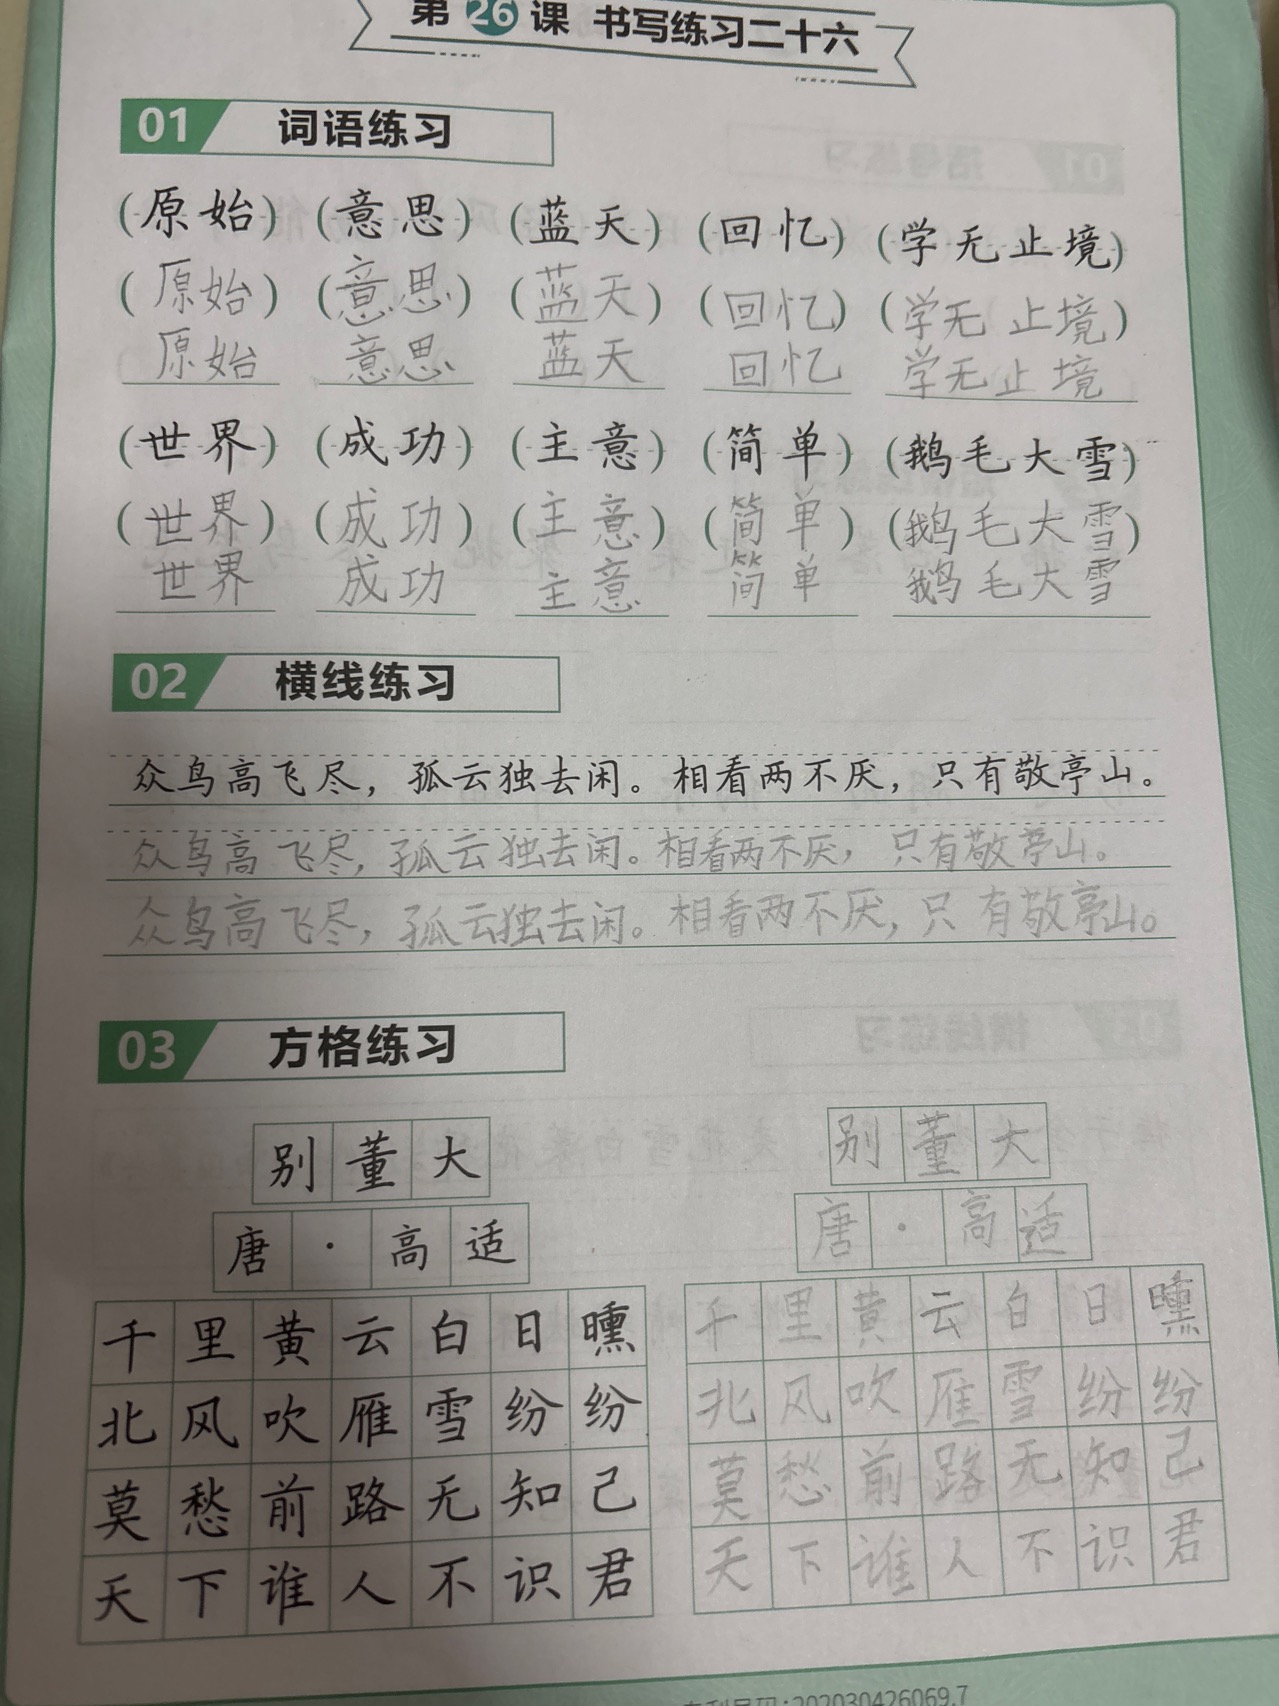 第26课 书写练习二十六
01 词语练习
(原始) (意思) (蓝天) (回忆) (学无止境)
(原始) (意思) (蓝天) (回忆) (学无止境)
原始 意思 蓝天 回忆 学无止境
(世界) (成功) (主意) (简单) (鹅毛大雪)
(世界) (成功) (主意) (简单) (鹅毛大雪)
世界 成功 主意 简单 鹅毛大雪
02 横线练习
众鸟高飞尽，孤云独去闲。相看两不厌，只有敬亭山。
众鸟高飞尽，孤云独去闲。相看两不厌，只有敬亭山。
众鸟高飞尽，孤云独去闲。相看两不厌，只有敬亭山。
03 方格练习
别董大
唐·高适
千里黄云白日曛
北风吹雁雪纷纷
莫愁前路无知己
天下谁人不识君
别董大
唐·高适
千里黄云白日曛
北风吹雁雪纷纷
莫愁前路无知己
天下谁人不识君
202030426069.7